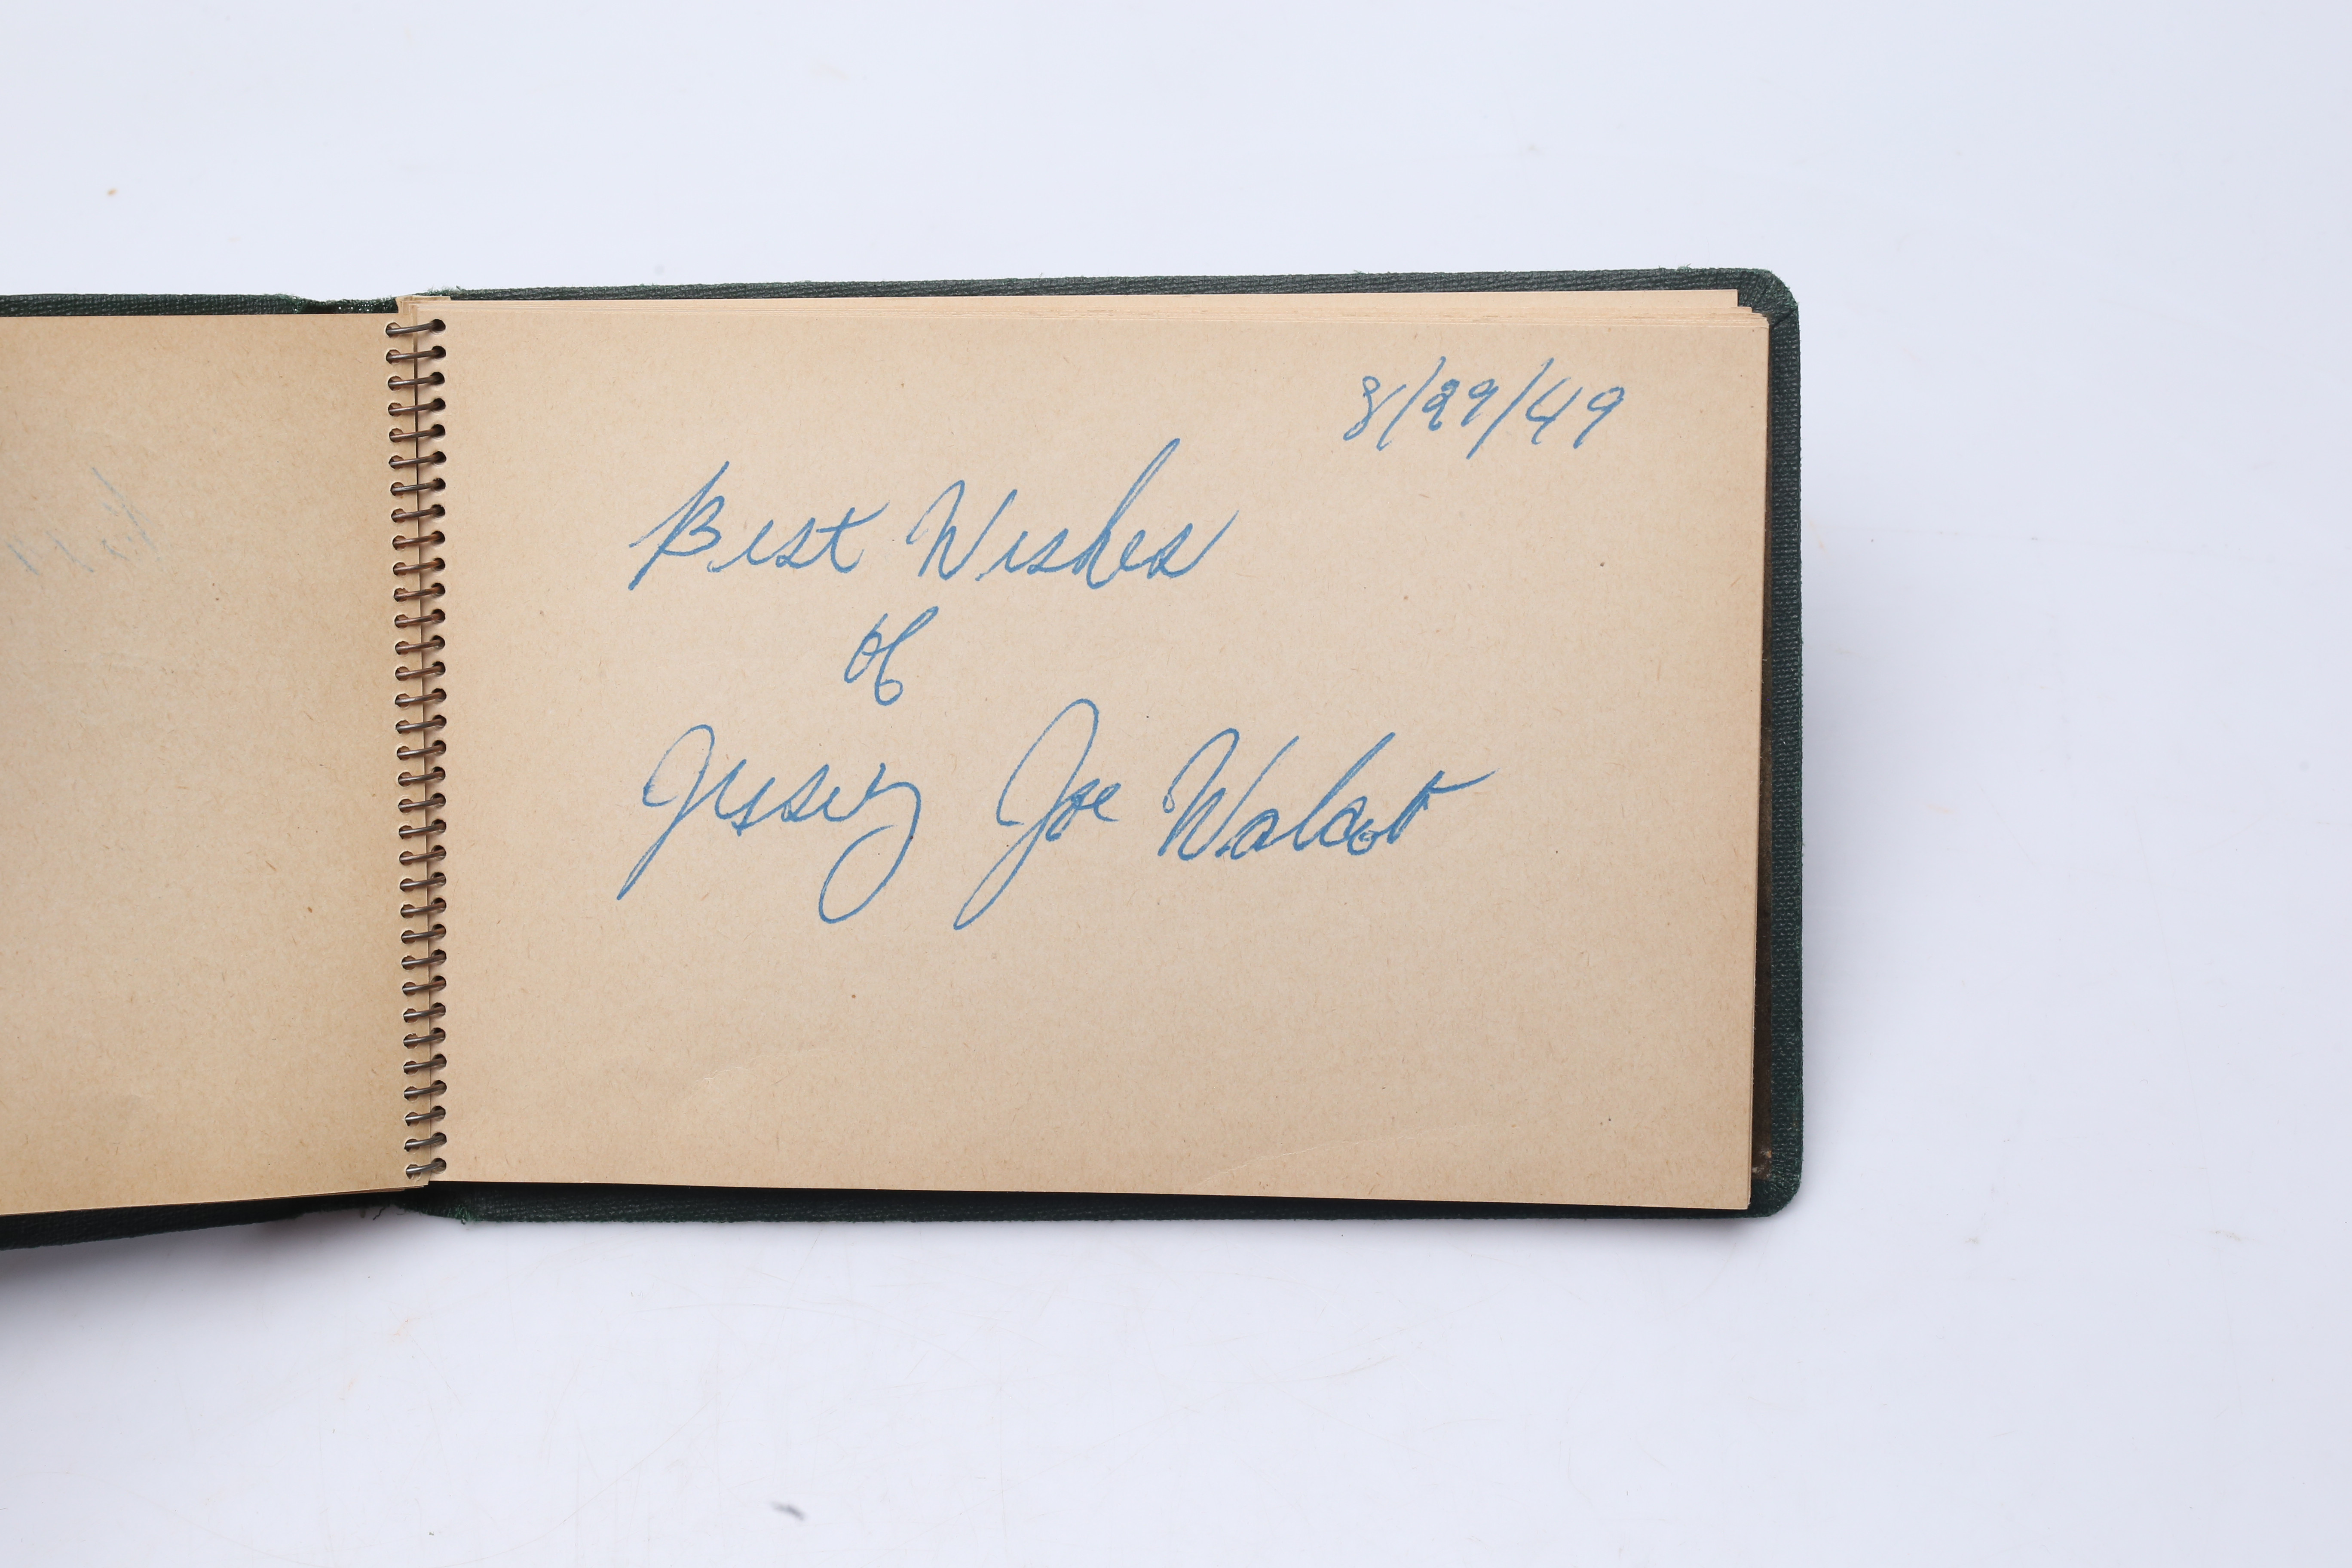 8/29/49
Best Wishes
of
Jersey Joe Walcott